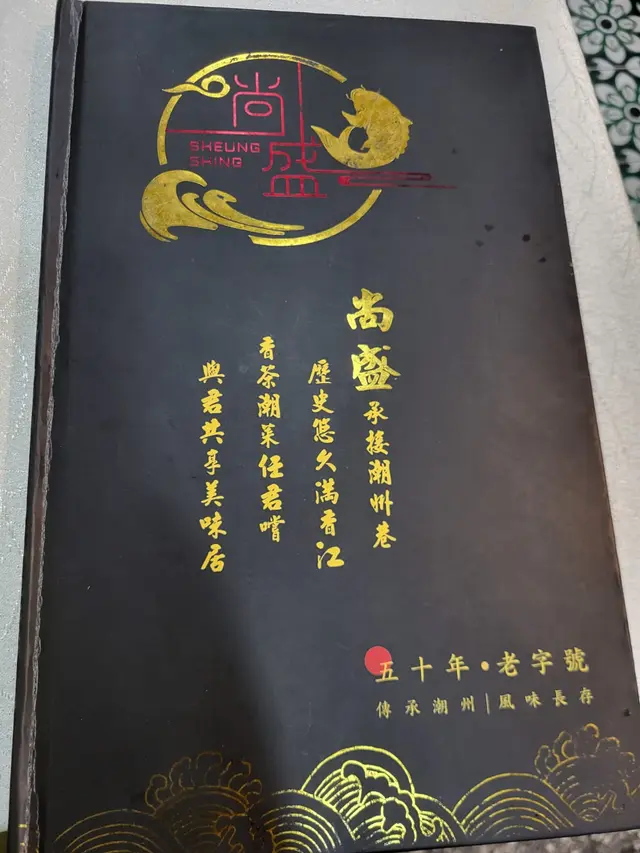 尚盛
SHEUNG
SHING
尚盛承接潮州巷
歷史悠久滿香江
香茶潮菜任君嚐
與君共享美味居
五十年•老字號
傳承潮州|風味長存